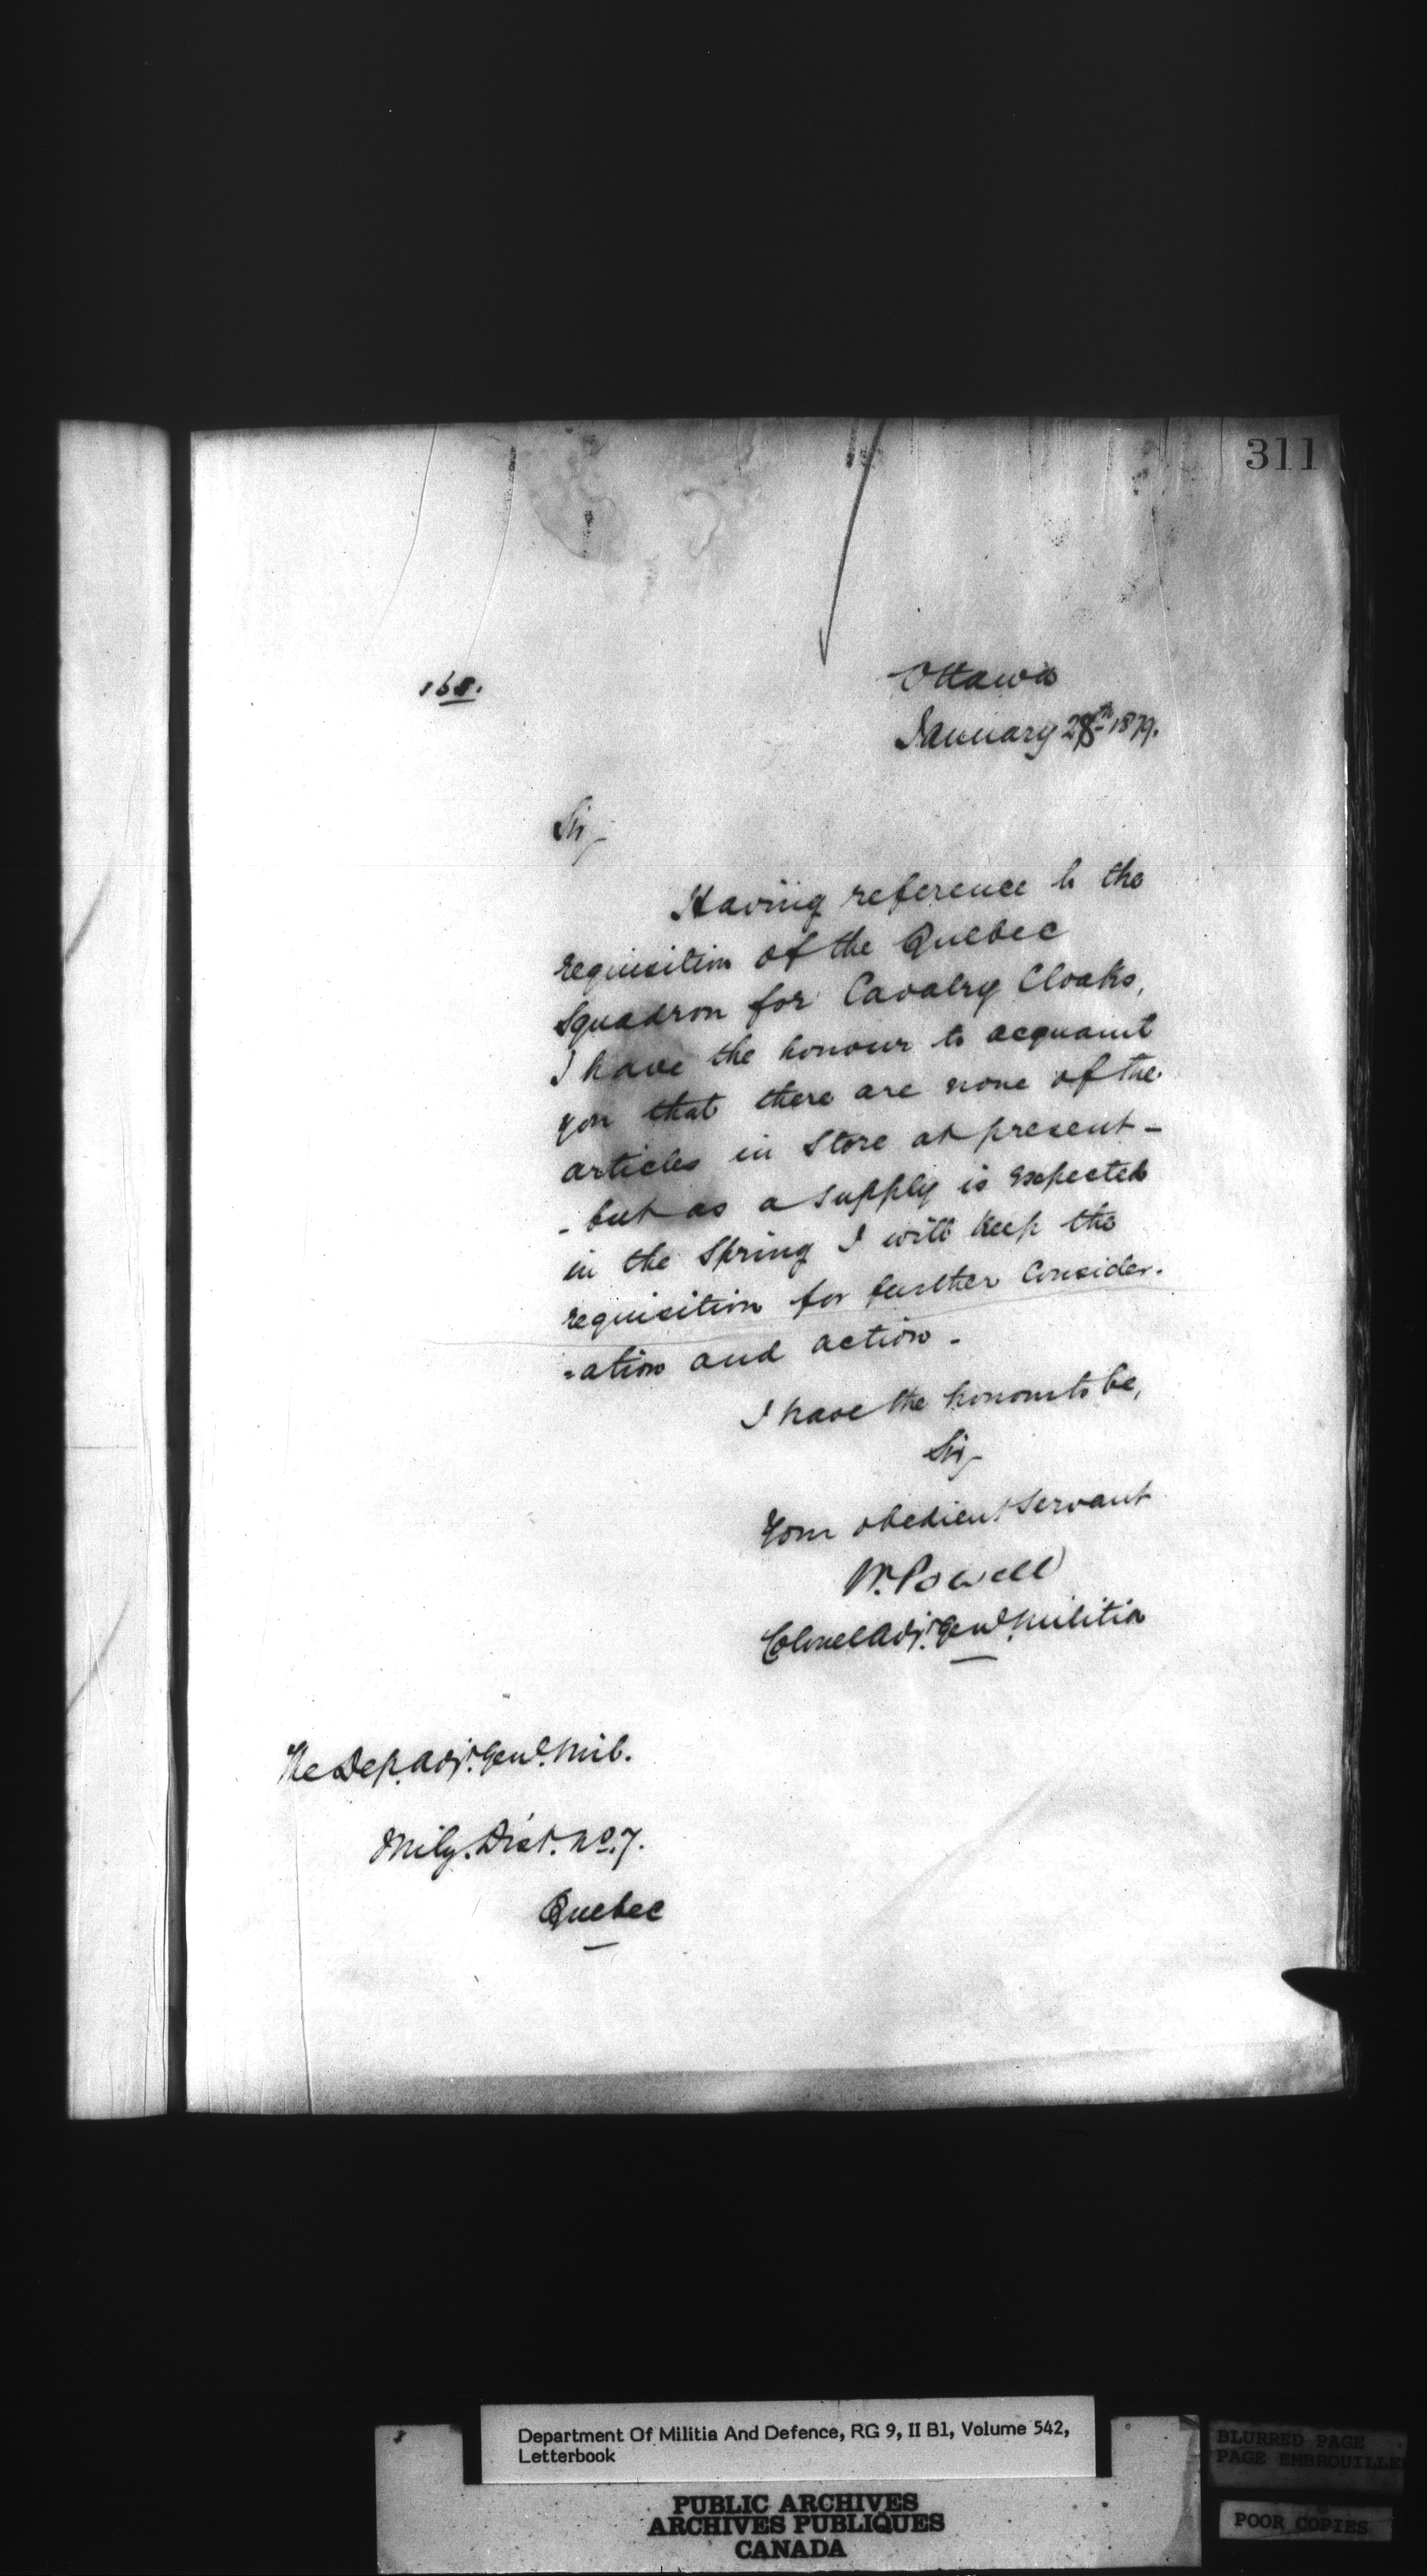 311
168.
Ottawa
January 28th 1879.
Sir,
Having reference to the
requisition of the Quebec
Squadron for Cavalry Cloaks,
I have the honour to acquaint
you that there are none of the
articles in Store at present -
- but as a supply is expected
in the Spring I will keep the
requisition for further Consider-
=ation and action -
I have the honour to be,
Sir,
Your obedient Servant
W. Powell
Colonel Adjt. Genl. Militia
The Dep. Adjt. Genl. Mil.
Mily. Dist. No. 7.
Quebec
Department Of Militia And Defence, RG 9, II B1, Volume 542,
Letterbook
PUBLIC ARCHIVES
ARCHIVES PUBLIQUES
CANADA
BLURRED PAGE
PAGE EMBROUILLEE
POOR COPIES